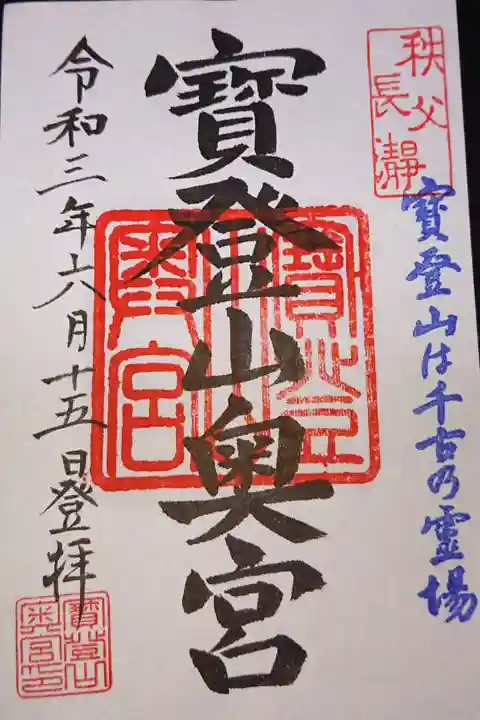 秩父
長瀞
寶登山は千古乃霊場
寶登山奥宮
奥宮
令和三年六月十五日登拝
寶登山
奥宮印